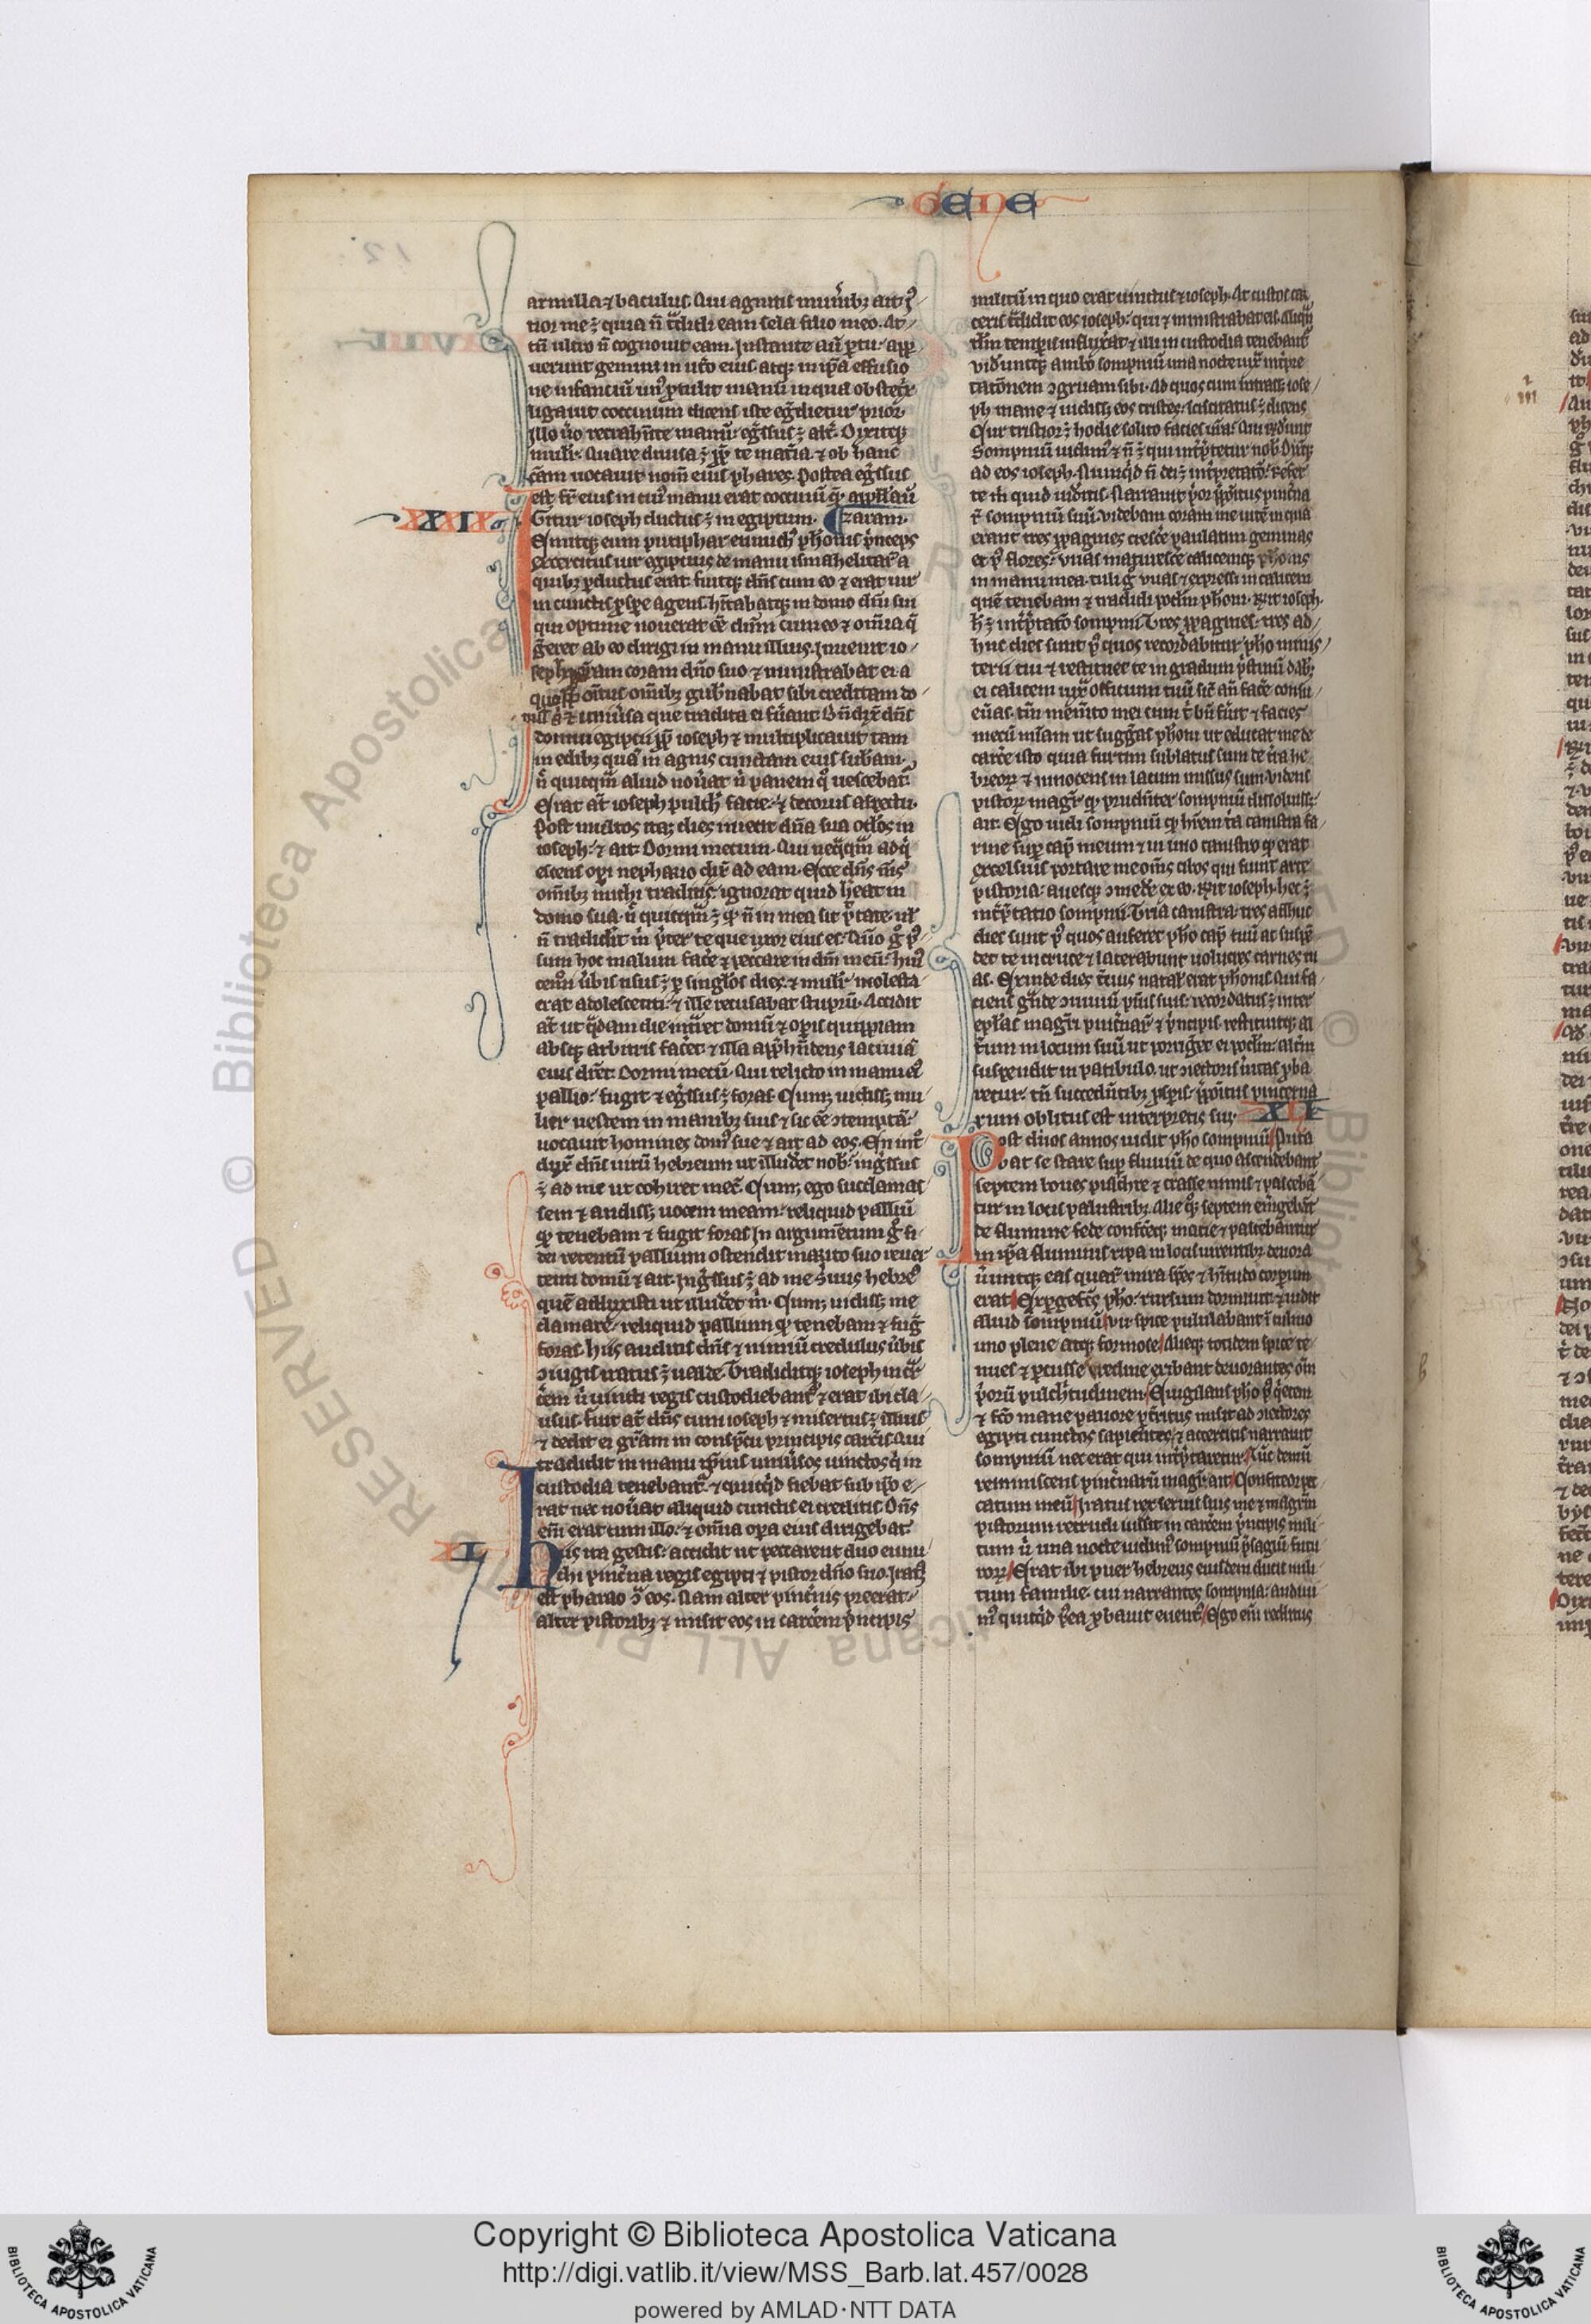 GENE
armilla ⁊ baculus. Qui agnitis munerib; ait iusti
tior me ÷ quia ñ tradidi eam sela filio meo. At
tñ ultra ñ cognouit eam. Instante aũ partu. appa
uerunt gemini in utero eius. atq; in ipa effusio
ne infanciũ un' protulit manũ in qua obstetrix
ligauit coccinum dicens iste egredietur prior
Illo uero retrahente manũ. egressus ÷ alter. Dixitq;
mulier. Quare diuisa ÷ propter te maceria. ⁊ ob hanc
cam uocauit nomen eius phares. Postea egressus
est frater eius in cui' manu erat coccinũ quem appellauit
XXXIX
Gitur ioseph ductus ÷ in egiptum. zaram.
Emitq; eum putiphar eunuch' pharonis princeps
exercitus uir egiptius de manu ismahelitarum a
quib; perductus erat. fuitq; dñs cum eo ⁊ erat uir
in cunctis prospere agens. habitabatq; in domo dñi sui
qui optime nouerat esse dñm cum eo ⁊ omnia que
gereret ab eo dirigi in manu illius. Inuenit io
seph gram coram dño suo ⁊ ministrabat ei a
quo prepositus omnib; gubernabat sibi creditam do
mum ⁊ uniuersa que tradita ei fuerant. Benedixit dñs
domui egiptii propter ioseph ⁊ multiplicauit tam
in edib; quam in agris cunctam eius substanciam.
nec quicquam aliud nouerat nisi panem quo uescebatur
Erat autem ioseph pulchra facie. ⁊ decorus aspectu.
Post multos itaq; dies iniecit dña sua oculos in
ioseph. ⁊ ait. Dormi mecum. Qui nequaquam adqui
escens operi nephario dixit ad eam. Ecce dñs meus
omnib; michi traditis. ignorat quid habeat in
domo sua. nec quicquam ÷ quod ñ in mea sit potestate. uel
ñ tradiderit mihi preter te que uxor eius es. Quomodo ergo pos
sum hoc malum facere ⁊ peccare in dm meũ. hui'
cemodi uerbis usus ÷ per singulos dies. ⁊ mulier molesta
erat adolescenti. ⁊ ille recusabat stuprũ. Accidit
autem ut quadam die intraret domũ ⁊ operis quippiam
absq; arbitris faceret. ⁊ illa apprehendens laciniã
eius diceret. Dormi mecũ. Qui relicto in manu ei'
pallio. fugit ⁊ egressus ÷ foras. Cumq; uidisset mu
lier uestem in manib; suis ⁊ se esse contemptã.
uocauit homines dom' sue ⁊ ait ad eos. En intro
duxit dñs uirũ hebreum ut illuderet nobis. ingressus
÷ ad me ut cohiret mecũ. Cumq; ego succlamas
sem ⁊ audisset uocem meam. reliquid palliũ
quod tenebam ⁊ fugit foras. In argumentum ergo fi
dei retentũ pallium ostendit marito suo reuer
tenti domũ ⁊ ait. Ingressus ÷ ad me seruus hebreus
quẽ adduxisti ut illuderet mihi. Cumq; uidisset me
clamare. reliquid pallium quod tenebam ⁊ fugit
foras. hiis auditis dñs ⁊ nimiũ credulus uerbis
coniugis iratus ÷ ualde. Tradiditq; ioseph in car
cerem ubi uincti regis custodiebantur ⁊ erat ibi cla
usus. fuit autem dñs cum ioseph ⁊ misertus ÷ illius
⁊ dedit ei gram in conspectu principis carceris. Qui
tradidit in manu ipsius uniuersos uinctos qui in
custodia tenebantur. ⁊ quicquid fiebat sub ipso e
rat nec nouerat aliquid cunctis ei creditis. Dñs
enim erat cum illo. ⁊ omnia opera eius dirigebat.
XL
his ita gestis. accidit ut peccarent duo eunu
chi pincerna regis egipti ⁊ pistor dño suo. Iratusq;
est pharao contra eos. Nam alter pincernis preerat.
alter pistorib; ⁊ misit eos in carcerem principis
militũ in quo erat uinctus ⁊ ioseph. At custos car
ceris tradidit eos ioseph. qui ⁊ ministrabat eis. Aliquan
tulum temporis influxerat. ⁊ illi in custodia tenebantur
Videruntq; ambo sompniũ una nocte iuxta interpre
tationem congruam sibi. Ad quos cum introisset iose
ph mane ⁊ uidisset eos tristes. sciscitatus ÷ dicens
Cur tristior ÷ hodie solito facies uestra. Qui responderunt
Sompniũ uidim' ⁊ ñ ÷ qui interpretetur nobis. Dixitq;
ad eos ioseph. Numquid ñ dei ÷ interpretatio. Refer
te mihi quid uideritis. Narrauit prior prepositus pincerna
rum sompniũ suũ. Videbam coram me uitem in qua
erant tres propagines crescere paulatim gemmas
et post flores. uuas maturescere calicemq; pharonis
in manu mea. tuli ergo uuas ⁊ expressi in calicem
quẽ tenebam ⁊ tradidi poculum pharoni. Respondit ioseph.
hec ÷ interpretatio sompnii. Tres propagines. tres ad
huc dies sunt post quos recordabitur pharo minis
terii tui ⁊ restituet te in gradum pristinũ. dabisq;
ei calicem iuxta officium tuũ sicut ante facere consu
eueras. tantum memento mei cum tibi bene fuerit ⁊ facies
mecũ misericordiam ut suggeras pharoni ut educat me de
carcere isto quia furtim sublatus sum de terra he
breorum ⁊ innocens in lacum missus sum. Videns
pistorum magister quod prudenter sompnium dissoluisset.
ait. Ego uidi sompniũ quod haberem tria canistra fa
rine super caput meum ⁊ in uno canistro quod erat
excelsius portare me omnes cibos qui fiunt arte
pistoria. auesq; comedere ex eo. Respondit ioseph. hec ÷
interpretatio sompnii. Tria canistra. tres adhuc
dies sunt post quos auferet pharo caput tuũ ac suspen
det te in cruce ⁊ lacerabunt uolucres carnes tu
as. Exinde dies tercius natalis erat pharonis. Qui fa
ciens grande conuiuiũ pueris suis. recordatus ÷ inter
epulas magistri pincernarum ⁊ principis. restituitq; al
terum in locum suũ ut porrigeret ei poculum. alterum
suspendit in patibulo. ut coniectoris ueritas proba
retur. tñ succedentib; prosperis. prepositus pincerna
rum oblitus est interpretis sui. XLI
Post duos annos uidit pharo sompniũ. Puta
bat se stare super fluuiũ de quo ascendebant
septem boues pulchre ⁊ crasse nimis ⁊ pasceban
tur in locis palustrib;. Alie quoque septem emergebant
de flumine fede confecteq; macie ⁊ pascebantur
in ipsa fluminis ripa in locis uirentib;. deuora
ueruntq; eas quarum mira species ⁊ habitudo corporum
erat. Expergefactus pharo. rursum dormiuit. ⁊ uidit
aliud sompniũ. VII spice pululabant in culmo
uno plene atq; formose. Alieq; totidem spice te
nues ⁊ percusse uredine oriebantur deuorantes omnem
priorũ pulchritudinem. Euigilans pharo post quietem
⁊ facto mane pauore perterritus misit ad coniectores
egipti cunctos sapientes. ⁊ accersitis narrauit
sompniũ nec erat qui interpretaretur. Tũc demũ
reminiscens pincernarũ magister ait. Confiteor pec
catum meũ. Iratus rex seruis suis me ⁊ magistrum
pistorum retrudi iussit in carcerem principis mili
tum ubi una nocte uidim' sompniũ presagũ futu
rorum. Erat ibi puer hebreus eiusdem ducis mili
tum famulus. cui narrantes sompnia. audiui
m' quicquid postea probauit euentus. Ego enim redditus
Copyright © Biblioteca Apostolica Vaticana
http://digi.vatlib.it/view/MSS_Barb.lat.457/0028
powered by AMLAD·NTT DATA